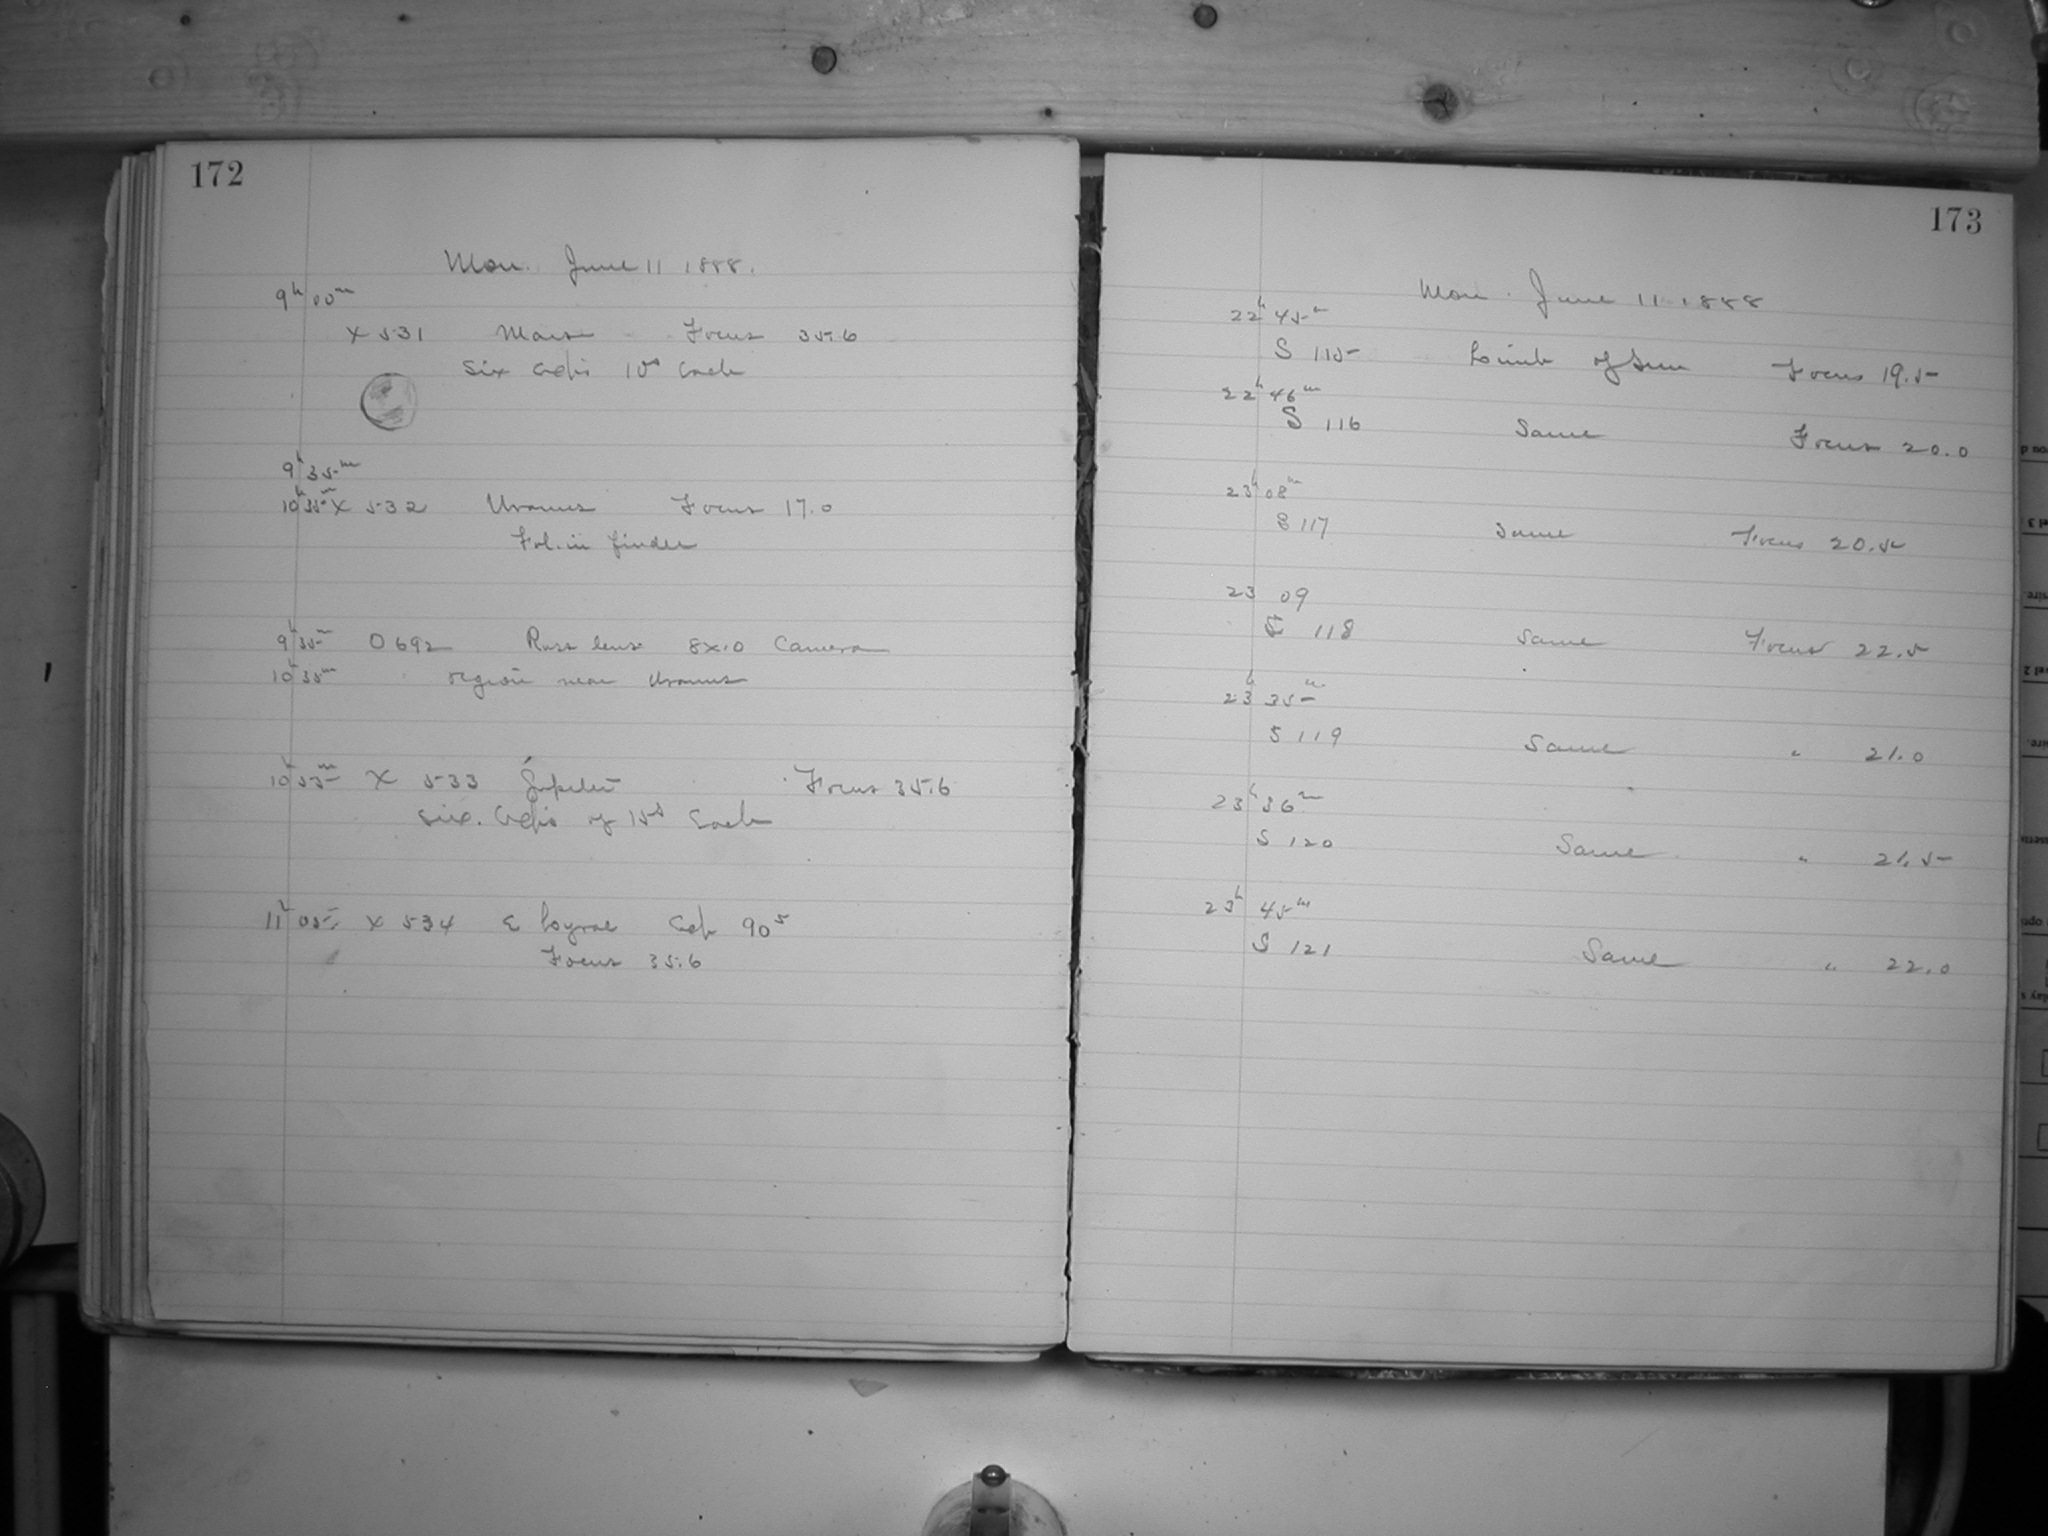 172
Mon. June 11 1888.
9h 00m
X 531 Mars Focus 35.6
Six exps 10s each
9h 35m
10h 35m X 532 Uranus Focus 17.0
Fol. in finder
9h 35m O 692 Ross lens 8x10 Camera
10h 35m region near Uranus
10h 53m X 533 Jupiter Focus 35.6
Six. exps of 15s each
11h 05m X 534 ε Lyrae exp 90s
Focus 35.6
173
Mon. June 11 1888
22h 45m
S 115 Limb of Sun Focus 19.5
22h 46m
S 116 Same Focus 20.0
23h 08m
S 117 Same Focus 20.5
23 09
118 Same Focus 22.5
23h 35m
S 119 Same " 21.0
23h 36m
S 120 Same " 21.5
23h 45m
S 121 Same " 22.0